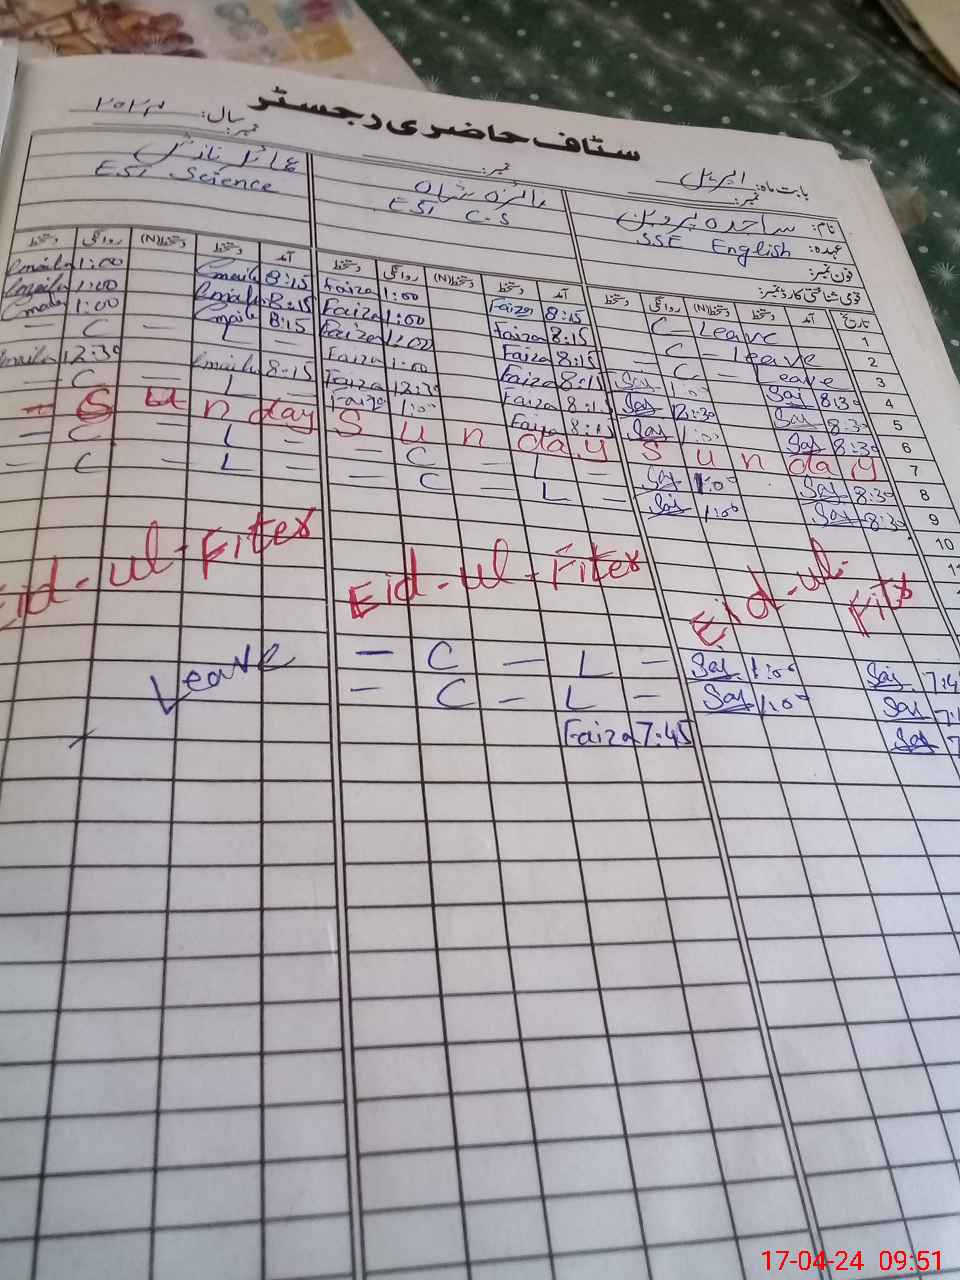 سٹاف حاضری رجسٹر
بابت ماہ: اپریل نمبر: سال: ۲۰۲۴ نمبر:
نام: ساجدہ پروین نمبر: فائزہ عمائلہ نازش
عہدہ: SSE English EST C.S EST Science
فون نمبر:
قومی شناختی کارڈ نمبر:
تاریخ آمد دستخط دستخط(N) روانگی دستخط آمد دستخط دستخط(N) روانگی دستخط آمد دستخط دستخط(N) روانگی دستخط
1:00 8:15 Faiza 1:00 Faiza 8:15 C - Leave 1
1:00 8:15 Faiza 1:00 Faiza 8:15 - C - Leave 2
1:00 8:15 Faiza 1:00 Faiza 8:15 - C - Leave 3
- C - L - Faiza 1:00 Faiza 8:15 Saj 1:00 Saj 8:30 4
12:30 8:15 Faiza 12:30 Faiza 8:15 Saj 12:30 Saj 8:30 5
- C - L - Faiza 1:00 Faiza 8:15 Saj 1:00 Saj 8:30 6
Sunday Sunday Sunday 7
- C - L - - C - L - Saj 1:00 Saj 8:30 8
- C - L - - C - L - Saj 1:00 Saj 8:30 9
10
11
Eid-ul-Fiter Eid-ul-Fiter Eid-ul-Fits
Leave - C - L - Saj 1:00 Saj 7:4
- C - L - Saj 1:00 Saj 7:
Faiza 7:45 Saj 7
17-04-24 09:51